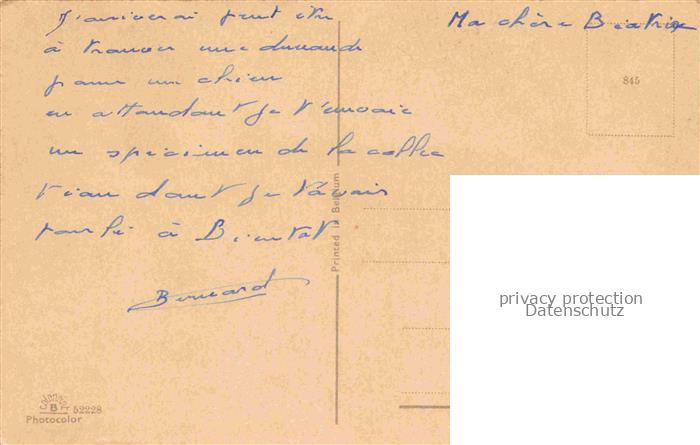 Ma chère Béatrix
J'arriverai peut être
à trouver une demande
pour un chien
en attendant je t'envoie
un spécimen de la collec
tion dont je t'avais
parlé à Bientôt
Bernard
845
Printed in Belgium
B
52228
Photocolor
privacy protection
Datenschutz